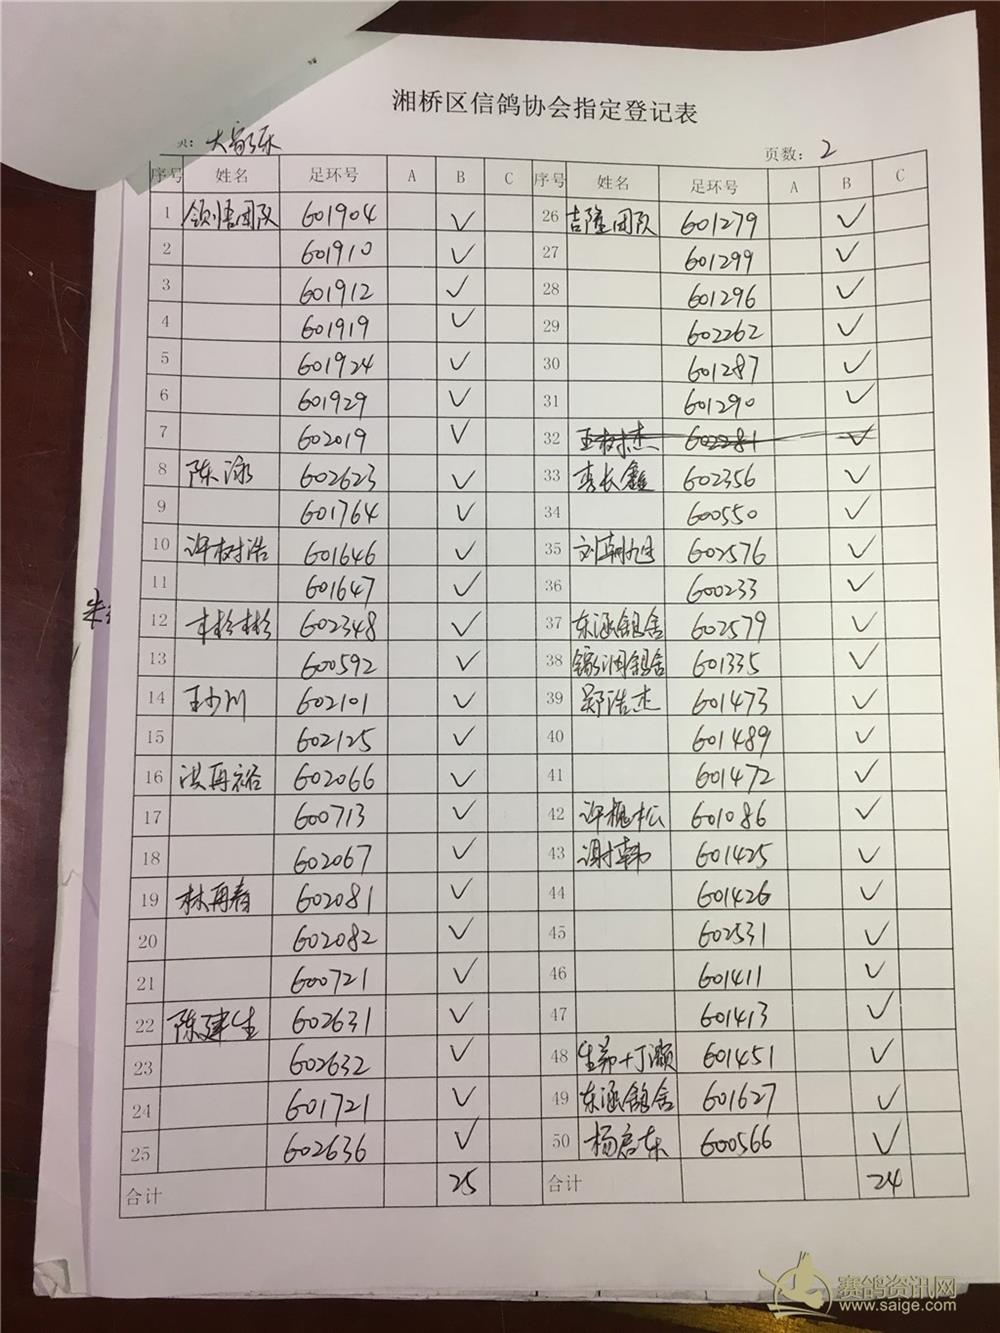 湘桥区信鸽协会指定登记表
大家乐 页数: 2
序号 姓名 足环号 A B C 序号 姓名 足环号 A B C
1 领悟团队 601904 ✓ 26 吉隆团队 601279 ✓
2 601910 ✓ 27 601299 ✓
3 601912 ✓ 28 601296 ✓
4 601919 ✓ 29 602262 ✓
5 601924 ✓ 30 601287 ✓
6 601929 ✓ 31 601290 ✓
7 602019 ✓ 32 王树杰 602281 ✓
8 陈泳 602623 ✓ 33 李长鑫 602356 ✓
9 601764 ✓ 34 600550 ✓
10 许树浩 601646 ✓ 35 刘朝旭 602576 ✓
11 601647 ✓ 36 600233 ✓
12 602348 ✓ 37 东涵鸽舍 602579 ✓
13 600592 ✓ 38 鸽舍 601335 ✓
14 王少川 602101 ✓ 39 郑浩杰 601473 ✓
15 602125 ✓ 40 601489 ✓
16 洪再裕 602066 ✓ 41 601472 ✓
17 600713 ✓ 42 许槐松 601086 ✓
18 602067 ✓ 43 谢韩 601425 ✓
19 林再春 602081 ✓ 44 601426 ✓
20 602082 ✓ 45 602531 ✓
21 600721 ✓ 46 601411 ✓
22 陈建生 602631 ✓ 47 601413 ✓
23 602632 ✓ 48 601451 ✓
24 601721 ✓ 49 东涵鸽舍 601627 ✓
25 602636 ✓ 50 杨启东 600566 ✓
合计 25 合计 24
朱
赛鸽资讯网
www.saige.com